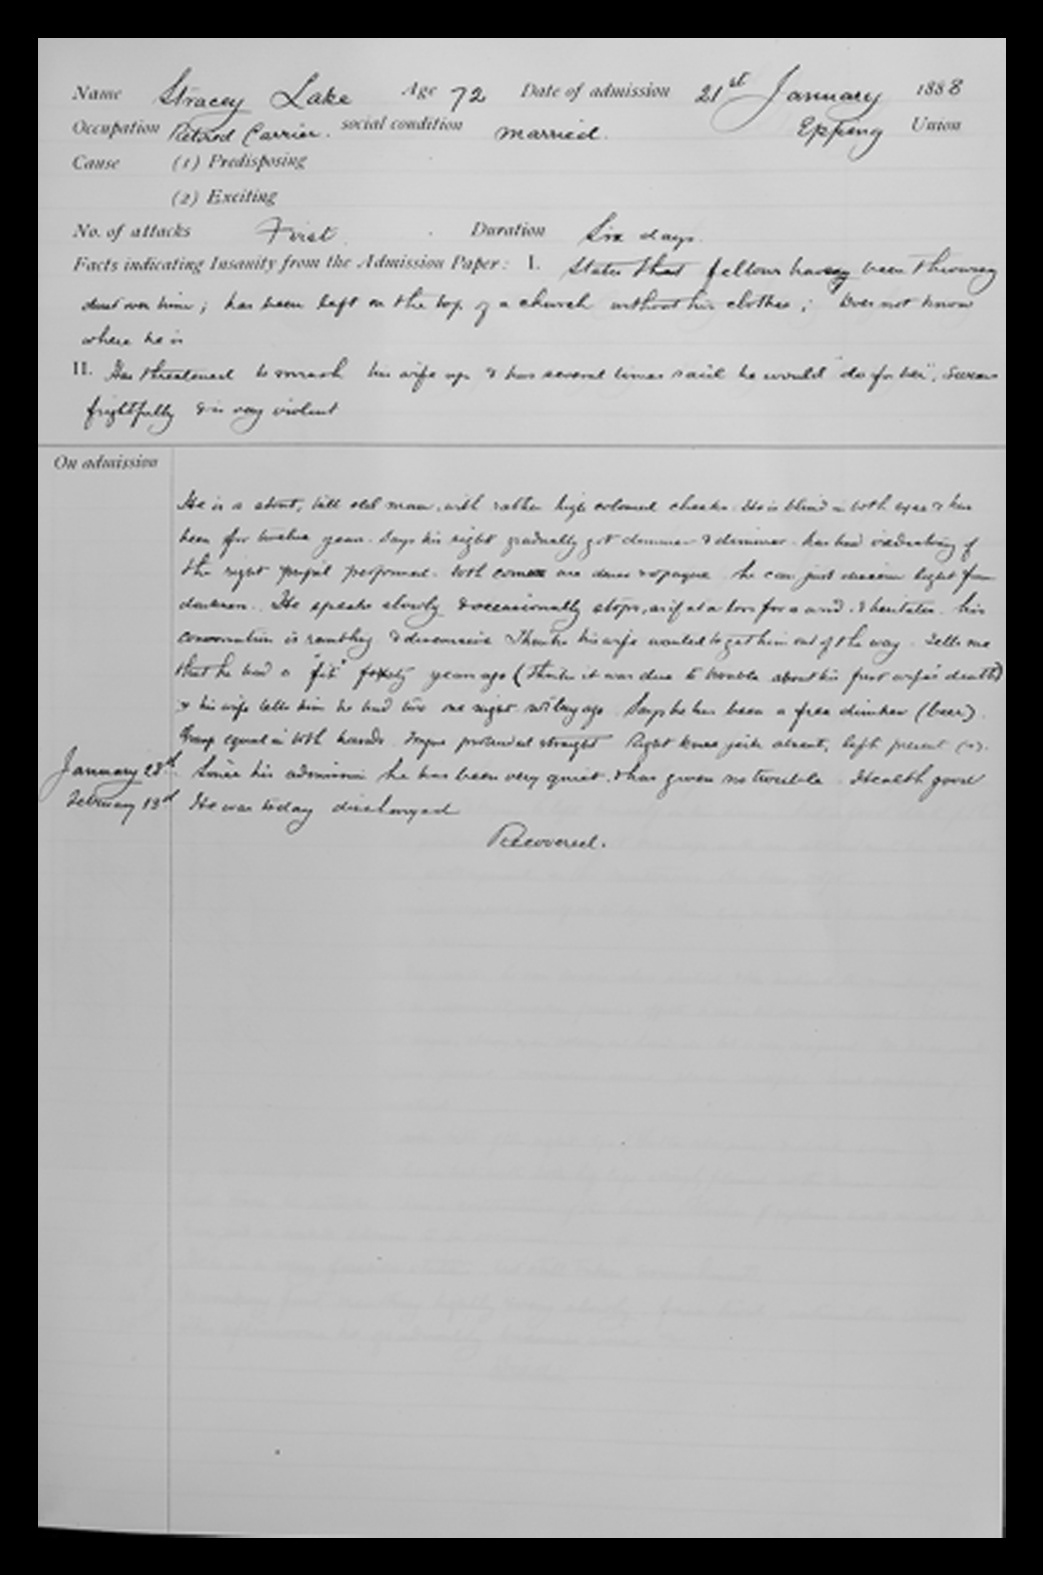 Name Stracey Lake Age 72 Date of admission 21st January 1888
Occupation Retired Carrier. social condition married. Epping Union
Cause (1) Predisposing
(2) Exciting
No. of attacks First. Duration Six days.
Facts indicating Insanity from the Admission Paper: I. States that fellows have been throwing
dust over him; has been left on the top of a church without his clothes; Does not know
where he is
II. Has threatened to smash his wife up & has several times said he would "do for her", Swears
frightfully & is very violent
On admission
He is a stout, tall old man, with rather high coloured cheeks. He is blind in both eyes & has
been for twelve years. Says his sight gradually got dimmer & dimmer. has had of
the right pupil performed. both are opaque he can just discern light from
darkness. He speaks slowly & occasionally stops, as if at a loss for a word, & hesitates. his
conversation is rambling & discursive Thinks his wife wanted to get him out of the way. Tells me
that he had a "fit" years ago (thinks it was due to trouble about his first wife's death)
& his wife tells him he had two one night not long ago Says he has been a free drinker (beer).
Grasp equal in both hands. Tongue protruded straight Right knee jerk absent, left present
January 28th Since his admission he has been very quiet, & has given no trouble. Health good
February 13th He was today discharged
Recovered.